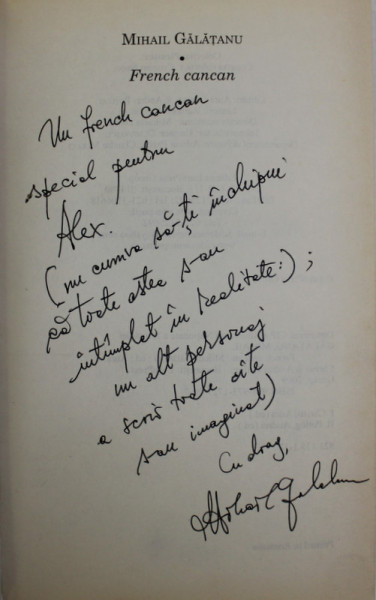 MIHAIL GĂLĂȚANU
•
French cancan
Un french cancan
special pentru
Alex.
(nu cumva să-ți închipui
că toate astea s-au
întîmplat în realitate:);
un alt personaj
a scris toate cîte
s-au imaginat)
Cu drag,
Mihail Galatanu